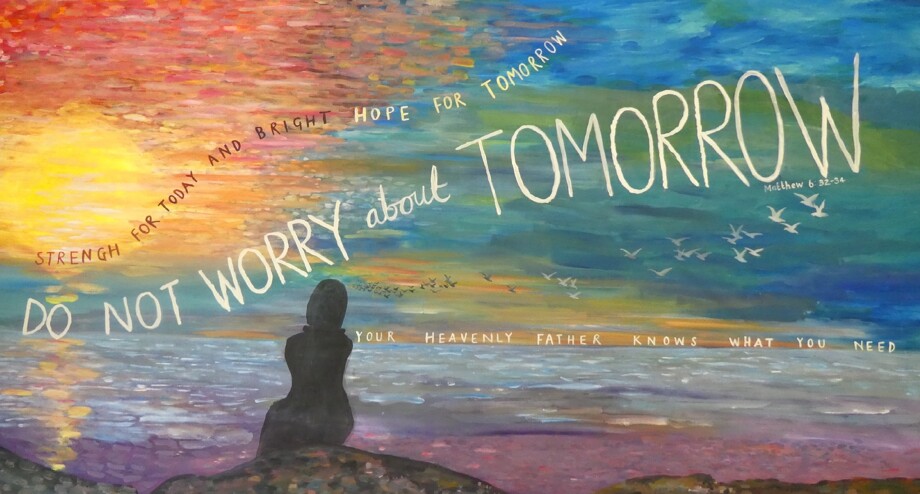 STRENGH FOR TODAY AND BRIGHT HOPE FOR TOMORROW
DO NOT WORRY about TOMORROW
Matthew 6 32-34
YOUR HEAVENLY FATHER KNOWS WHAT YOU NEED